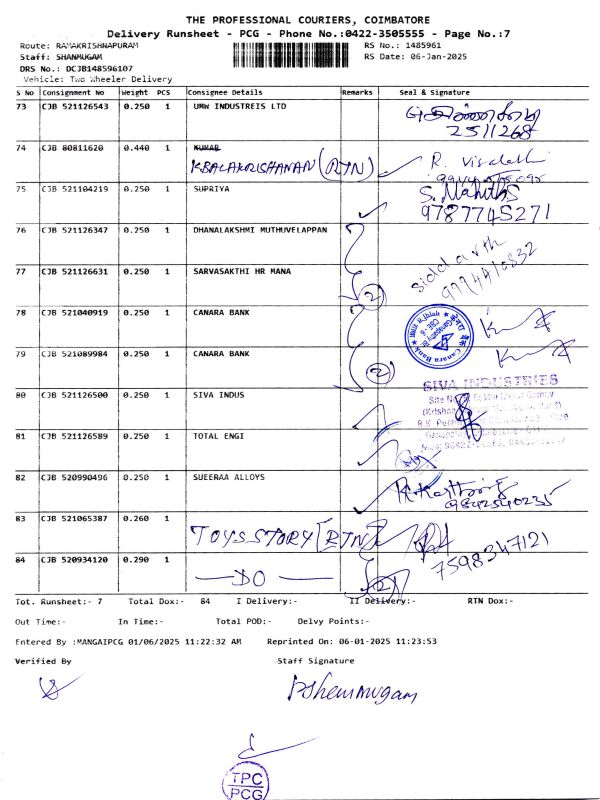 THE PROFESSIONAL COURIERS, COIMBATORE
Delivery Runsheet - PCG - Phone No.:0422-3505555 - Page No.:7
Route: RAMAKRISHNAPURAM RS No.: 1485961
Staff: SHANMUGAM RS Date: 06-Jan-2025
DRS No.: DCJB148596107
Vehicle: Two Wheeler Delivery
S No Consignment No Weight PCS Consignee Details Remarks Seal & Signature
73 CJB 521126543 0.250 1 UMW INDUSTREIS LTD
2511268
74 CJB 80811620 0.440 1 KUMAR
K BALAKRISHANAN (RTN) R. Visalath
75 CJB 521104219 0.250 1 SUPRIYA S. Mahitha
9787745271
76 CJB 521126347 0.250 1 DHANALAKSHMI MUTHUVELAPPAN
siddarth
77 CJB 521126631 0.250 1 SARVASAKTHI HR MANA 9994410832
2
78 CJB 521040919 0.250 1 CANARA BANK
79 CJB 521089984 0.250 1 CANARA BANK Canara Bank
2
80 CJB 521126500 0.250 1 SIVA INDUS SIVA INDUSTRIES
81 CJB 521126589 0.250 1 TOTAL ENGI
82 CJB 520990496 0.250 1 SUEERAA ALLOYS
9842540235
83 CJB 521065387 0.260 1
TOYS STORY [RTN]
7598347121
84 CJB 520934120 0.290 1
— DO — 2
Tot. Runsheet:- 7 Total Dox:- 84 I Delivery:- II Delivery:- RTN Dox:-
Out Time:- In Time:- Total POD:- Delvy Points:-
Entered By :MANGAIPCG 01/06/2025 11:22:32 AM Reprinted On: 06-01-2025 11:23:53
Verified By Staff Signature
Shenmugam
TPC
PCG